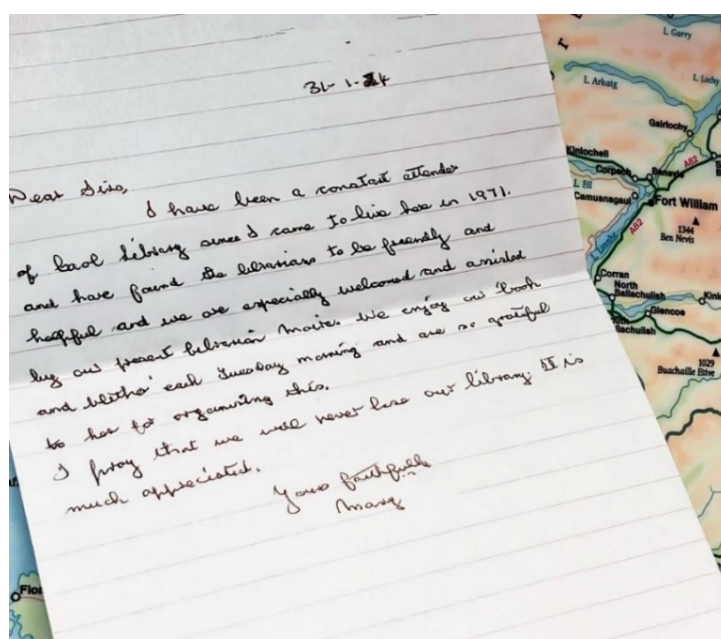 31-1-24
Dear Sirs,
I have been a constant attender
of Caol Library since I came to live here in 1971.
and have found the librarians to be friendly and
helpful and we are especially welcomed and assisted
by our present librarian Maite. We enjoy our 'book
and blither' each Tuesday morning and are so grateful
to her for organising this.
I pray that we will never lose our library. It is
much appreciated.
Yours faithfully
Mary
L. Garry
L. Arkaig
L. Lochy
Gairlochy
A82
Kinlocheil
Corpach
Banavie
L. Eil
Camusnagaul
Fort William
1344
Ben Nevis
A82
L. Linnhe
Corran
North
Ballachulish
Glencoe
1029
Buachaille Etive